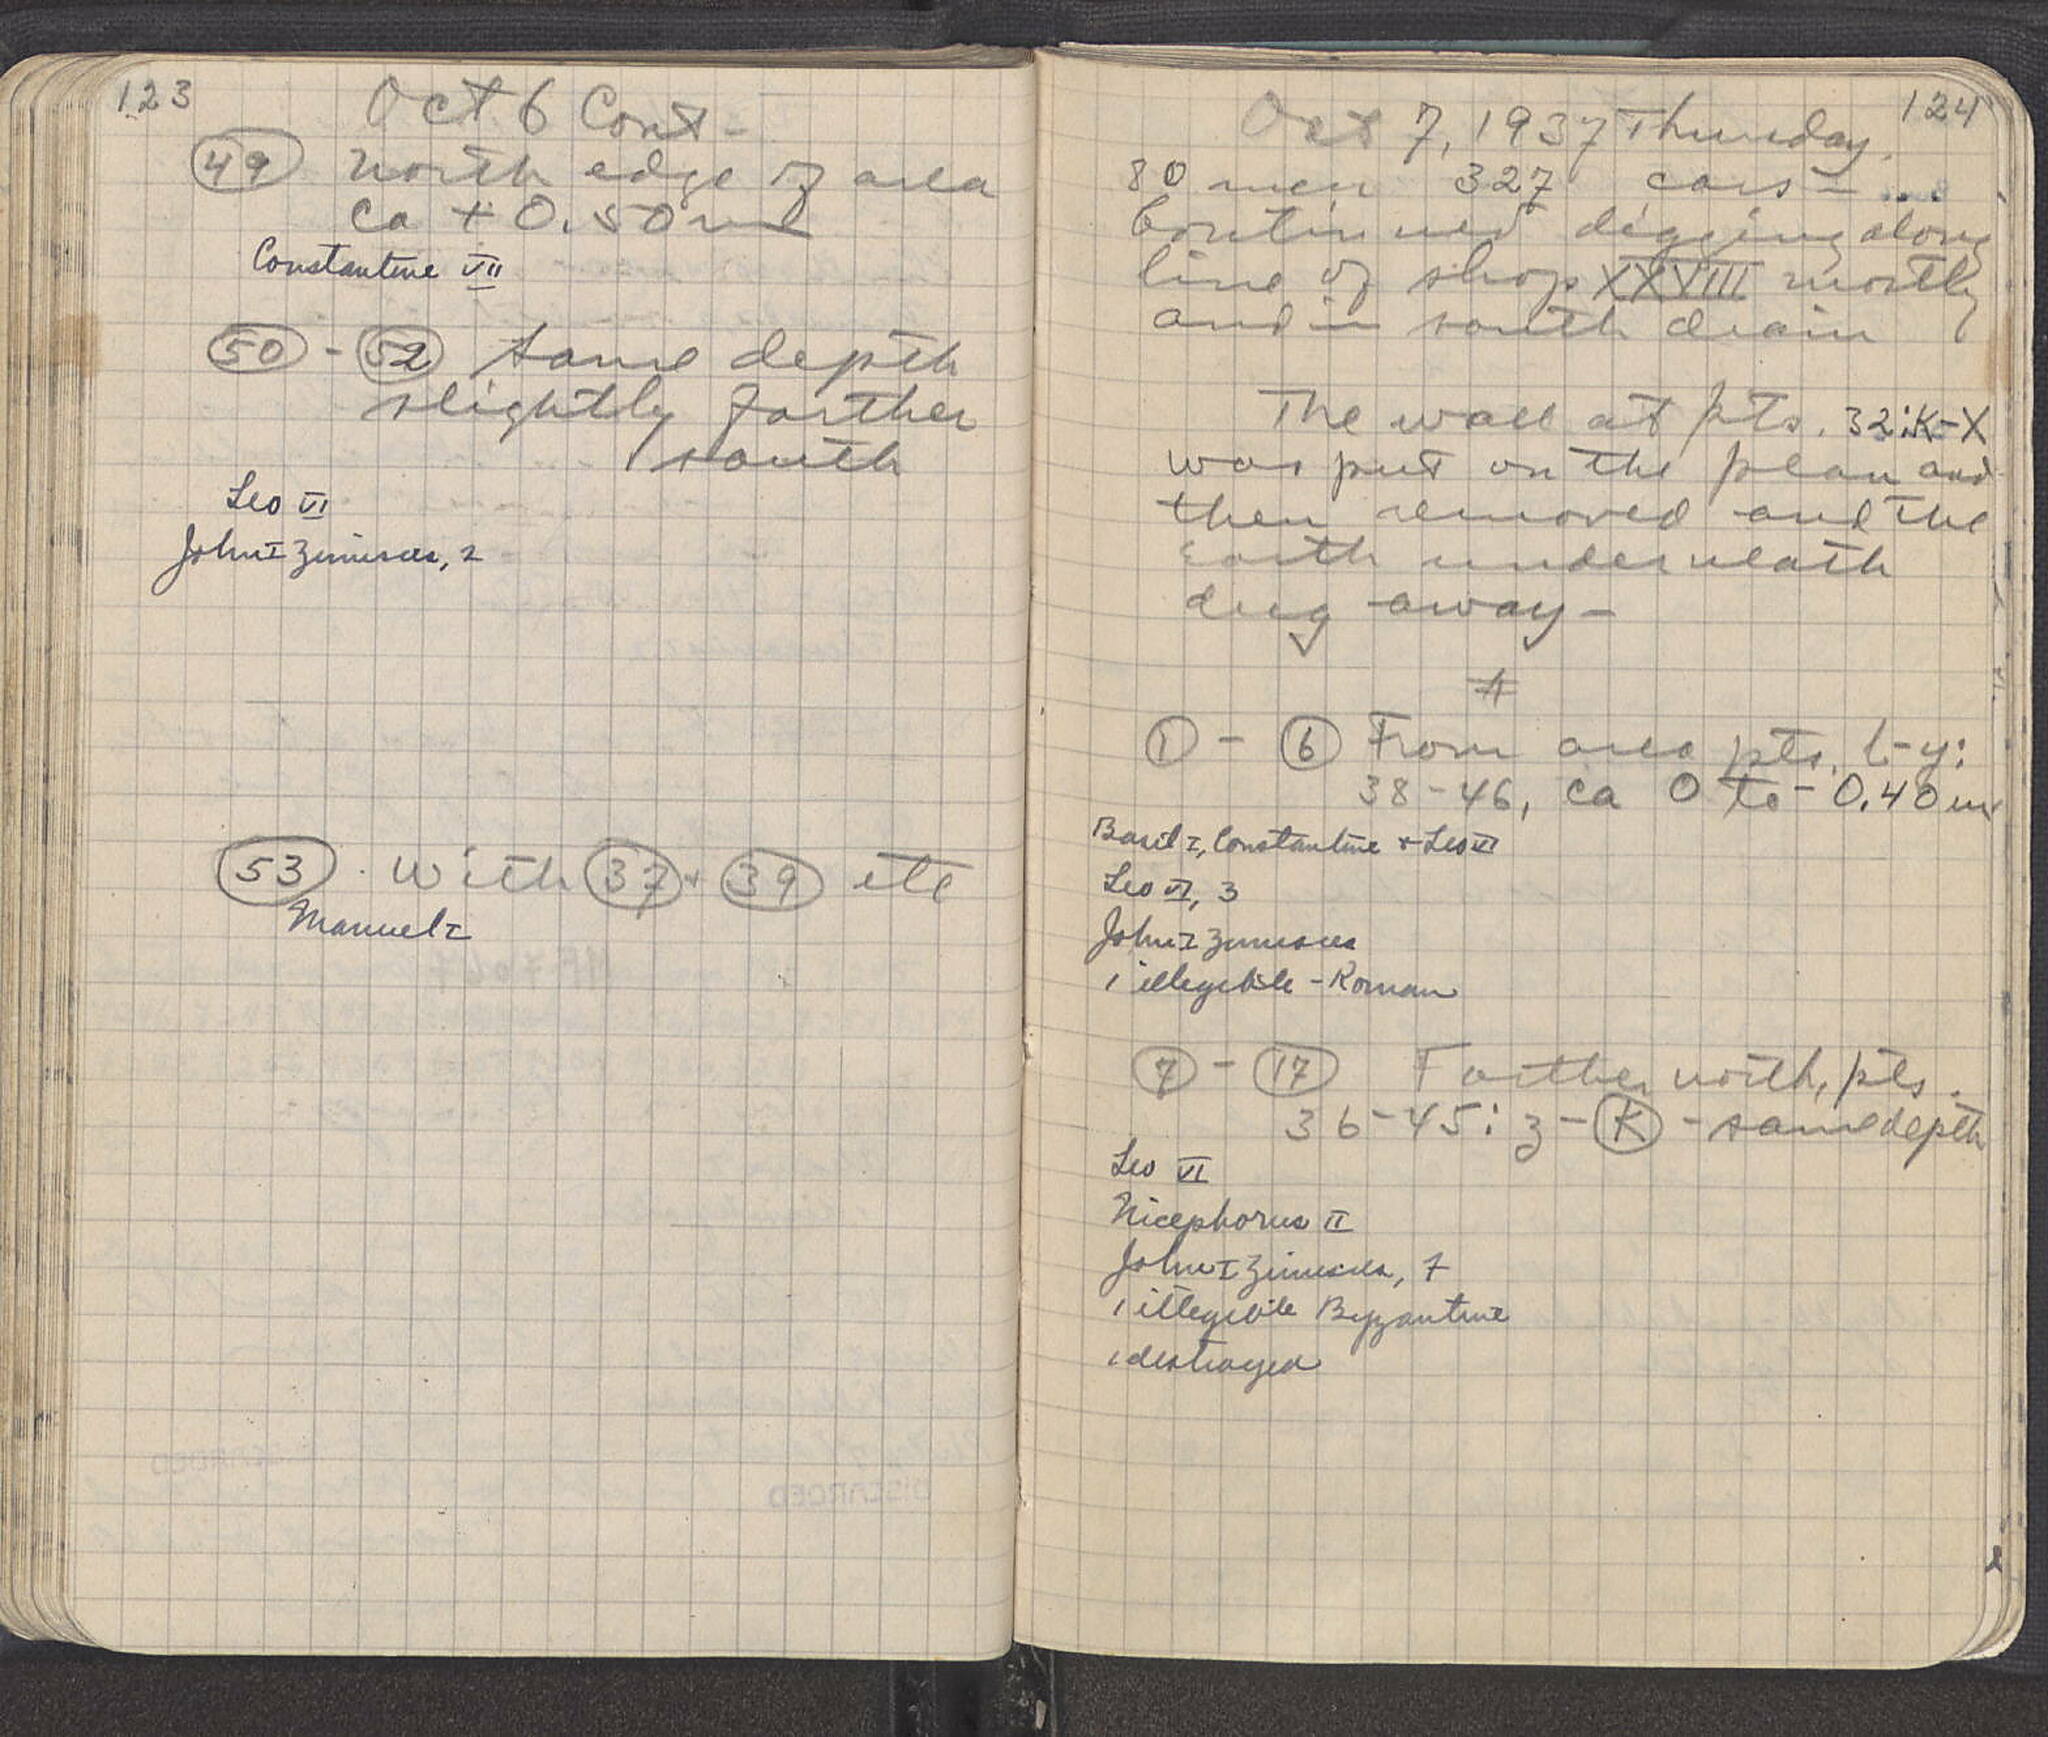 123
Oct 6 Cont-
49 north edge of area
ca + 0.50 m
Constantine VII
50 - 52 same depth
slightly farther
south
Leo VI
John I Zimisces, 2
53 · with 37 + 39 etc
Manuel I
124
Oct 7, 1937 Thursday.
80 men 327 cars - ...
Continued digging along
line of shop XXVIII mostly
and in south drain
The wall at pts. 32:K-X
was put on the plan and
then removed and the
earth underneath
dug away -
#
1 - 6 From area pts. t-y:
38-46, ca 0 to -0.40 m
Basil I, Constantine + Leo VI
Leo VI, 3
John I Zimisces
1 illegible - Roman
7 - 17 Farther north, pts.
36-45: z - K - same depth
Leo VI
Nicephorus II
John I Zimisces, 7
1 illegible Byzantine
1 destroyed